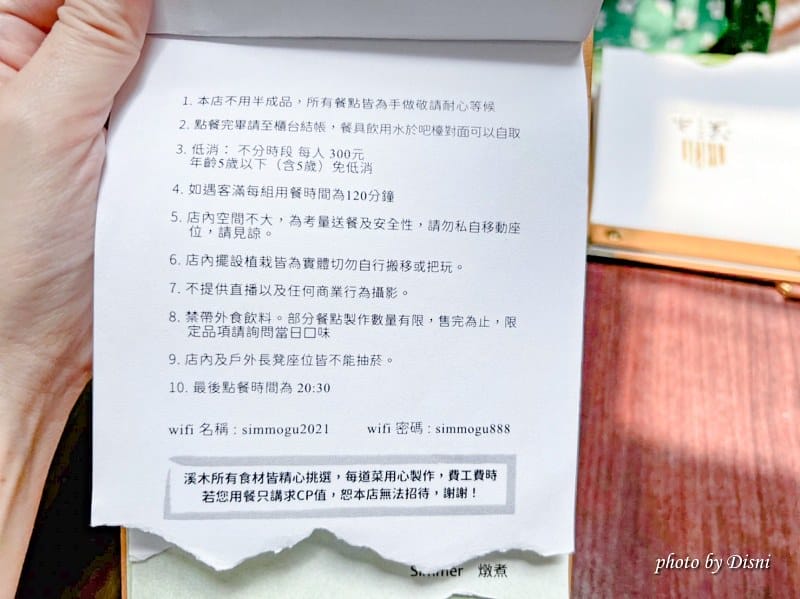 1. 本店不用半成品，所有餐點皆為手做敬請耐心等候
2. 點餐完畢請至櫃台結帳，餐具飲用水於吧檯對面可以自取
3. 低消： 不分時段 每人 300元
年齡5歲以下（含5歲）免低消
4. 如遇客滿每組用餐時間為120分鐘
5. 店內空間不大，為考量送餐及安全性，請勿私自移動座
位，請見諒。
6. 店內擺設植栽皆為實體切勿自行搬移或把玩。
7. 不提供直播以及任何商業行為攝影。
8. 禁帶外食飲料。部分餐點製作數量有限，售完為止，限
定品項請詢問當日口味
9. 店內及戶外長凳座位皆不能抽菸。
10. 最後點餐時間為 20:30
wifi 名稱 : simmogu2021 wifi 密碼 : simmogu888
溪木所有食材皆精心挑選，每道菜用心製作，費工費時
若您用餐只講求CP值，恕本店無法招待，謝謝！
Simmer 燉煮
photo by Disni